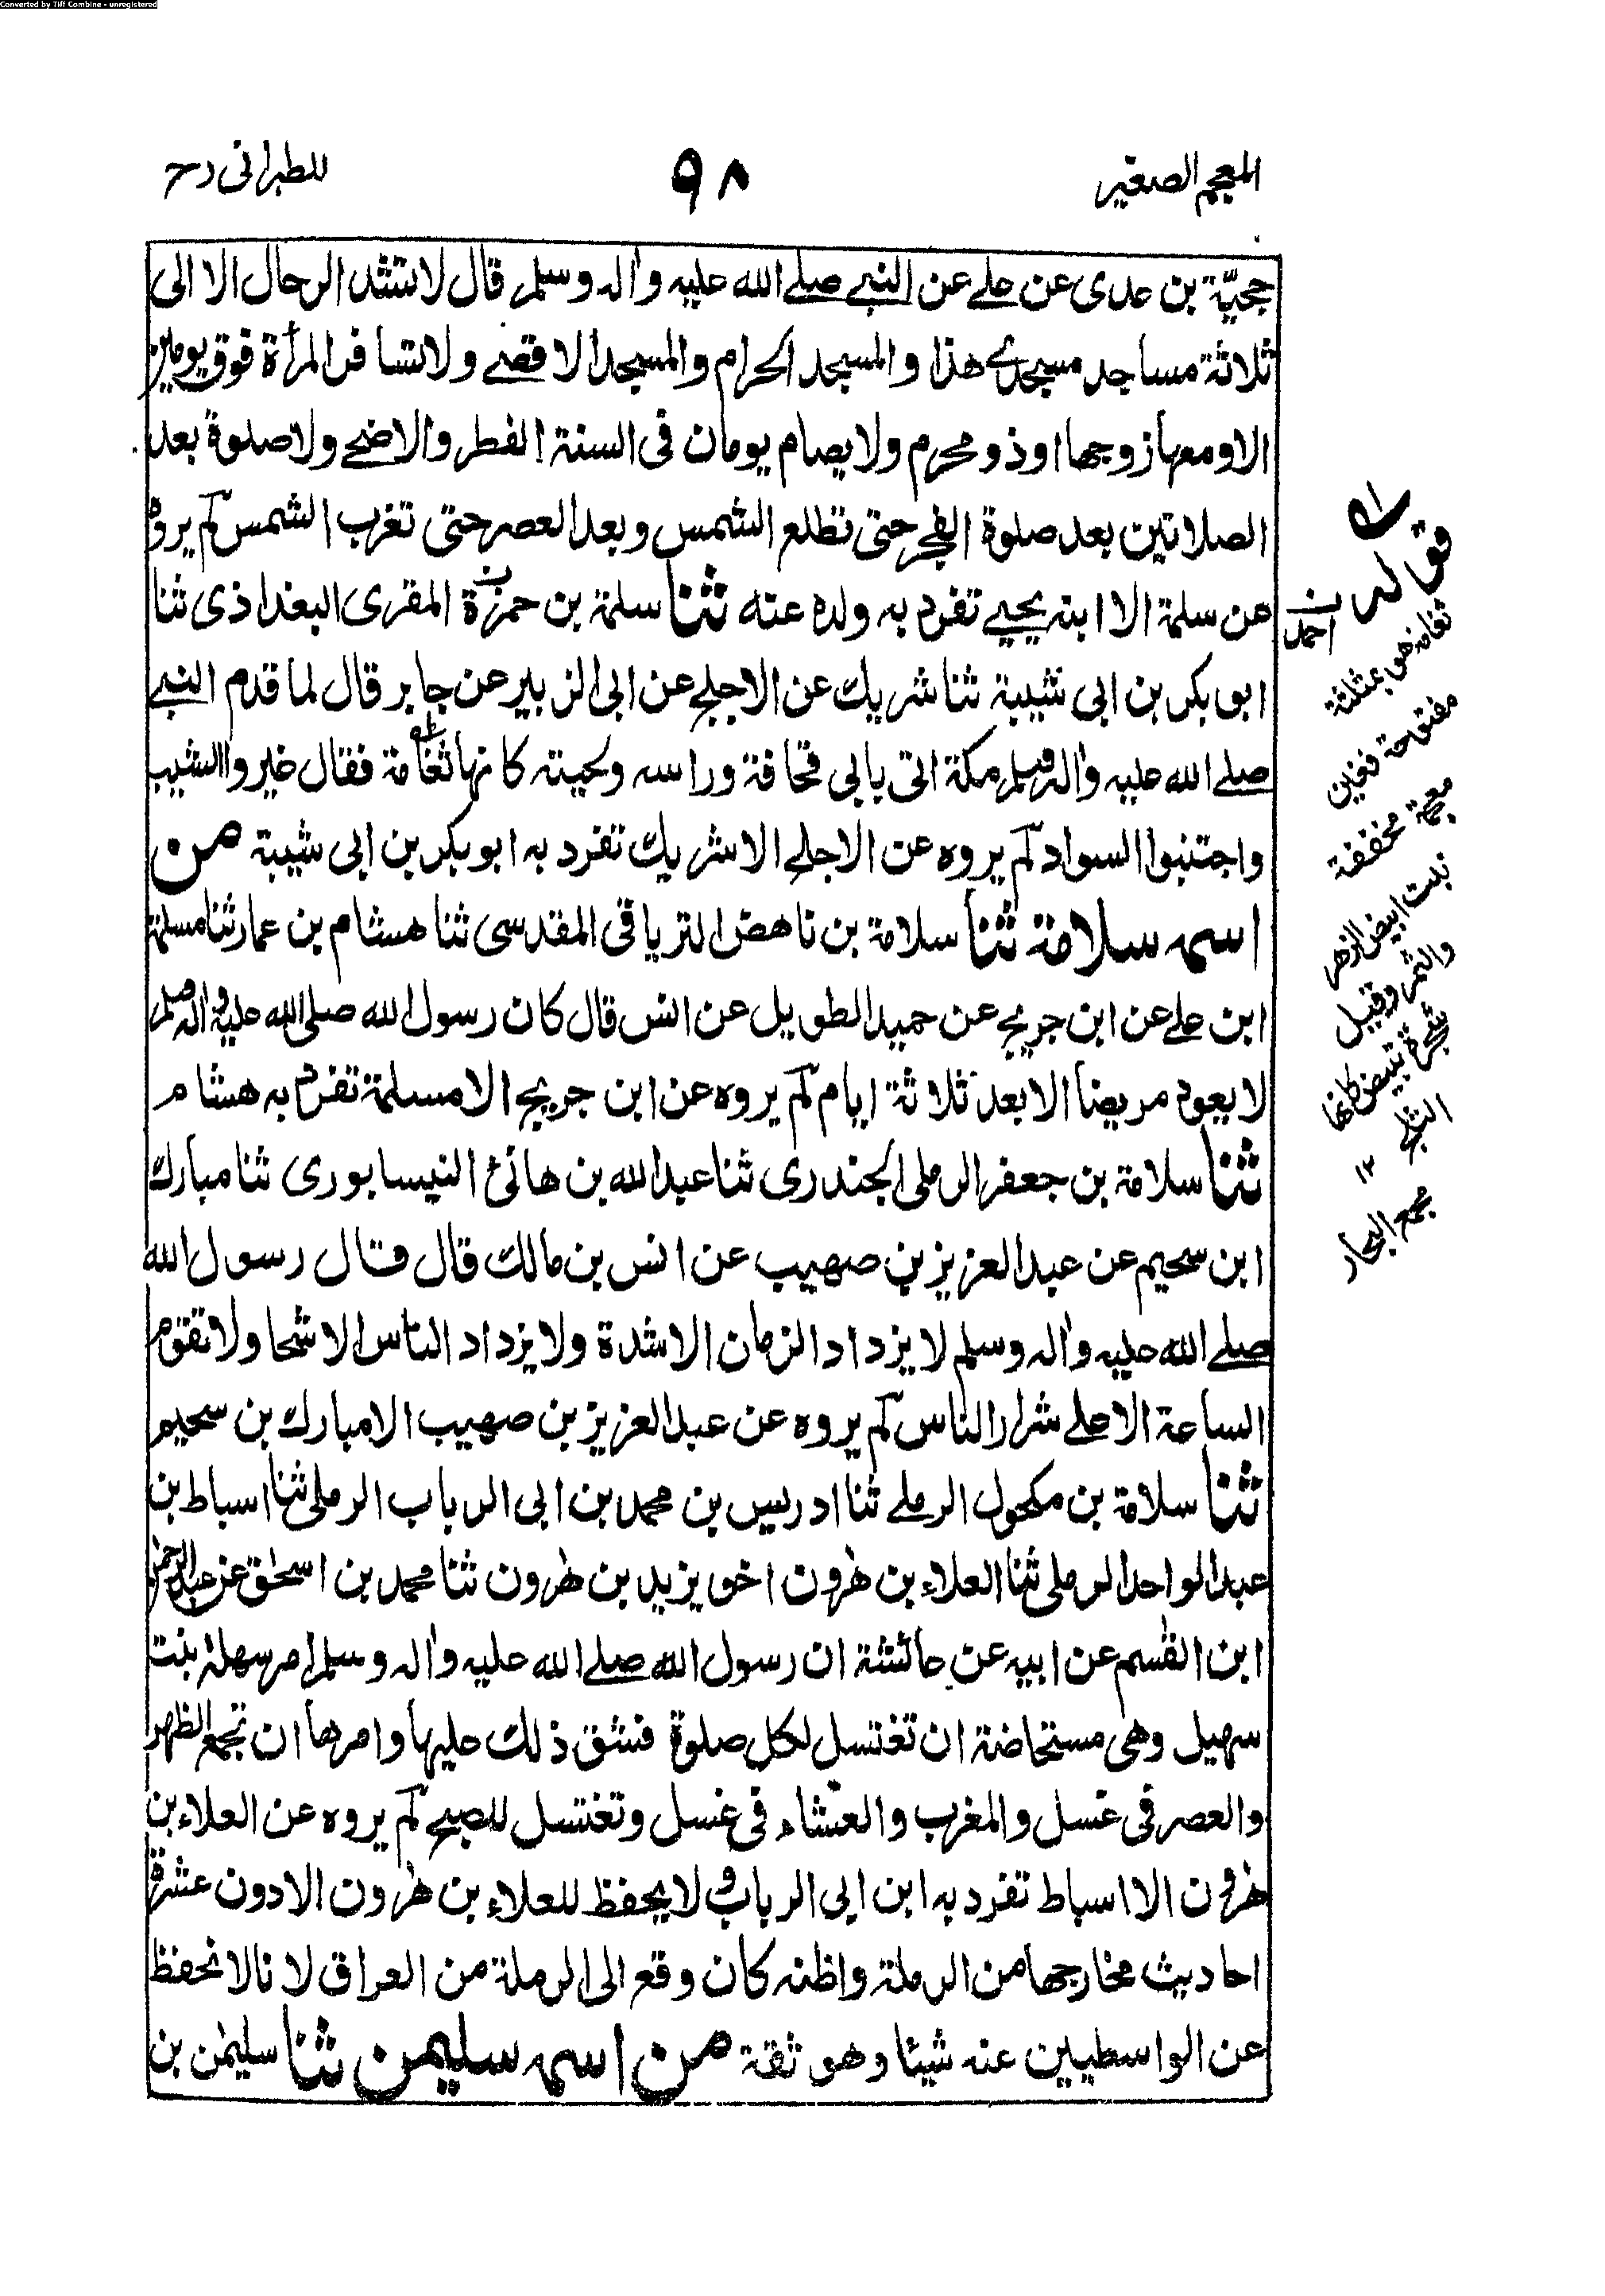 Converted by Tiff Combine - unregistered
المعجم الصغير
٩٨
للطبرانی رح
حجيّة بن عدى عن علے عن النبے صلے الله عليه واٰله وسلم قال لا تشد الرحال الا الى
ثلاثة مساجد مسجدے هذا والمسجد الحرام والمسجد الاقصے ولا تسافر المرأة فوق يومين
الا ومعها زوجها او ذو محرم ولا يصام يومان فى السنة الفطر والاضحے ولا صلوة بعد
الصلاتين بعد صلوة الفجر حتى تطلع الشمس وبعد العصر حتى تغرب الشمس لم يروه
عن سلمة الا ابنه يحيے تفرد به ولده عنه ثنا سلمة بن حمزة المقرى البغداذى ثنا
ابو بكر بن ابى شيبة ثنا شريك عن الاجلح عن ابى الزبير عن جابر قال لما قدم النبے
صلے الله عليه واٰله وسلم مكة اتى بابى قحافة وراسه ولحيته كانها ثغامة فقال غيروا الشيب
واجتنبوا السواد لم يروه عن الاجلح الا شريك تفرد به ابو بكر بن ابى شيبة من
اسمه سلامة ثنا سلامة بن ناهض الترياقى المقدسى ثنا هشام بن عمار ثنا مسلمة
ابن علے عن ابن جريج عن حميد الطويل عن انس قال كان رسول الله صلى الله عليه واٰله وسلم
لا يعود مريضا الا بعد ثلاثة ايام لم يروه عن ابن جريج الا مسلمة تفرد به هشام
ثنا سلامة بن جعفر الرملى الجندرى ثنا عبد الله بن هانئ النيسابورى ثنا مبارك
ابن سحيم عن عبد العزيز بن صهيب عن انس بن مالك قال قال رسول الله
صلے الله عليه واٰله وسلم لا يزداد الزمان الا شدة ولا يزداد الناس الا شحا ولا تقوم
الساعة الا علے شرار الناس لم يروه عن عبد العزيز بن صهيب الا مبارك بن سحيم
ثنا سلامة بن مكحول الرملے ثنا ادريس بن محمد بن ابى الرباب الرملى ثنا اسباط بن
عبد الواحد الرملى ثنا العلاء بن هٰرون اخو يزيد بن هٰرون ثنا محمد بن اسحٰق عن عبد الرحمٰن
ابن القٰسم عن ابيه عن عائشة ان رسول الله صلے الله عليه واٰله وسلم امر سهلة بنت
سهيل وهى مستحاضة ان تغتسل لكل صلوة فشق ذلك عليها وامرها ان تجمع الظهر
والعصر فى غسل والمغرب والعشاء فى غسل وتغتسل للصبح لم يروه عن العلاء بن
هٰرون الا اسباط تفرد به ابن ابى الرباب ولا يحفظ للعلاء بن هٰرون الا دون عشرة
احاديث مخارجها من الرملة واظنه كان وقع الى الرملة من العراق لانا لا نحفظ
عن الواسطيين عنه شيئا وهو ثقة من اسمه سليمن ثنا سليمٰن بن
ن
احمد
قوله
ثغامة هو بمثلثة
مفتوحة فغين
معجمة مخففة
نبت ابيض الزهر
والثمر وقيل
شجرة تبيض كانها
الثلج ١٢
مجمع البحار